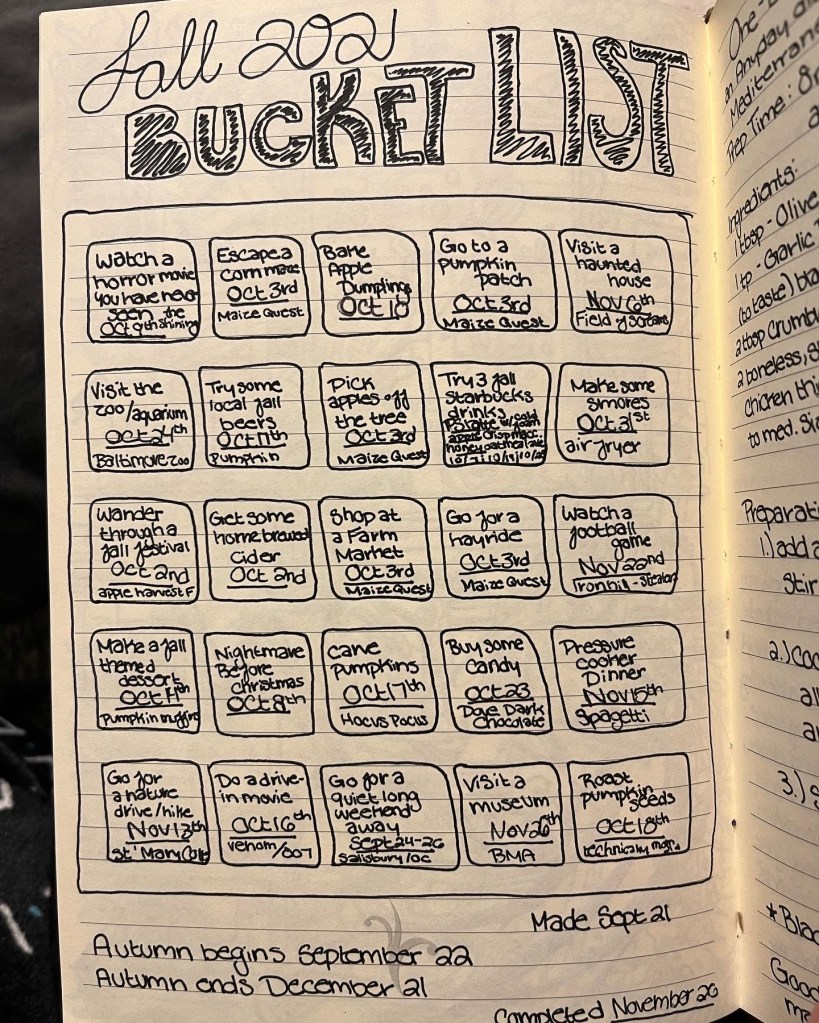 Fall 202
BUCKET LIST
Watch a
horror movie
you have never
seen the
Oct 9th Shining
Escape a
corn maze
Oct 3rd
Maize Quest
Bake
Apple
Dumplings
Oct 18
Go to a
pumpkin
patch
Oct 3rd
Maize Quest
Visit a
haunted
house
Nov 6th
Field of Screams
Visit the
zoo/aquarium
Oct 24th
Baltimore zoo
Try some
local fall
beers
Oct 17th
Pumpkin
Pick
apples off
the tree
Oct 3rd
Maize Quest
Try 3 fall
Starbucks
drinks
cold
apple crisp
honey oatmeal
Make some
smores
Oct 31st
air fryer
Wander
through a
fall festival
Oct 2nd
apple harvest F
Get some
home brewed
cider
Oct 2nd
Shop at
a Farm
Market
Oct 3rd
Maize Quest
Go for a
hayride
Oct 3rd
Maize Quest
Watch a
football
game
Nov 22nd
Ironhill - Steelers
Make a fall
themed
dessert
Oct 11th
Pumpkin muffins
Nightmare
Before
Christmas
Oct 8th
Carve
Pumpkins
Oct 17th
Hocus Pocus
Buy some
Candy
Oct 23
Dove Dark
Chocolate
Pressure
cooker
Dinner
Nov 15th
Spagetti
Go for
a nature
drive/hike
Nov 13th
St' Mary
Do a drive-
in movie
Oct 16th
venom/007
Go for a
quiet long
weekend
away
Sept 24-26
Salisbury/OC
Visit a
museum
Nov 26th
BMA
Roast
pumpkin
seeds
Oct 18th
technically
Made Sept 21
Autumn begins September 22
Autumn ends December 21
Completed November 26
One-
an Anyday
Mediterran
Prep Time:
Ingredients:
1 tbsp - Olive
1 tp - Garlic
(to taste)
2 tbsp Crumb
2 boneless, s
Chicken thi
to med.
Preparati
1.) add
Stir
2.)
all
3.)
Good